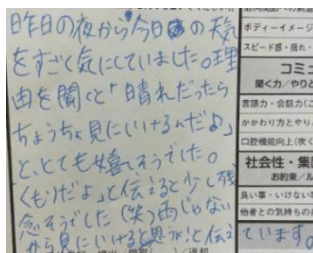 昨日の夜から今日の天気
をすごく気にしていました。理
由を聞くと「晴れだったら
ちょうちょ見にいけるんだよ」
と、とても嬉しそうでした。
くもりだよ」と伝えると少し残
念そうでした(笑)雨じゃない
から見にいけると思うよ!と伝え
ています。
ボディーイメージ
スピード感・揺れ・
コミ
聞く力/やりと
言語力・会話力(こ
かかわり方とやり
口腔機能向上(吹く
社会性・集
お約束/ル
良い事・いけない
他者との気持ちの